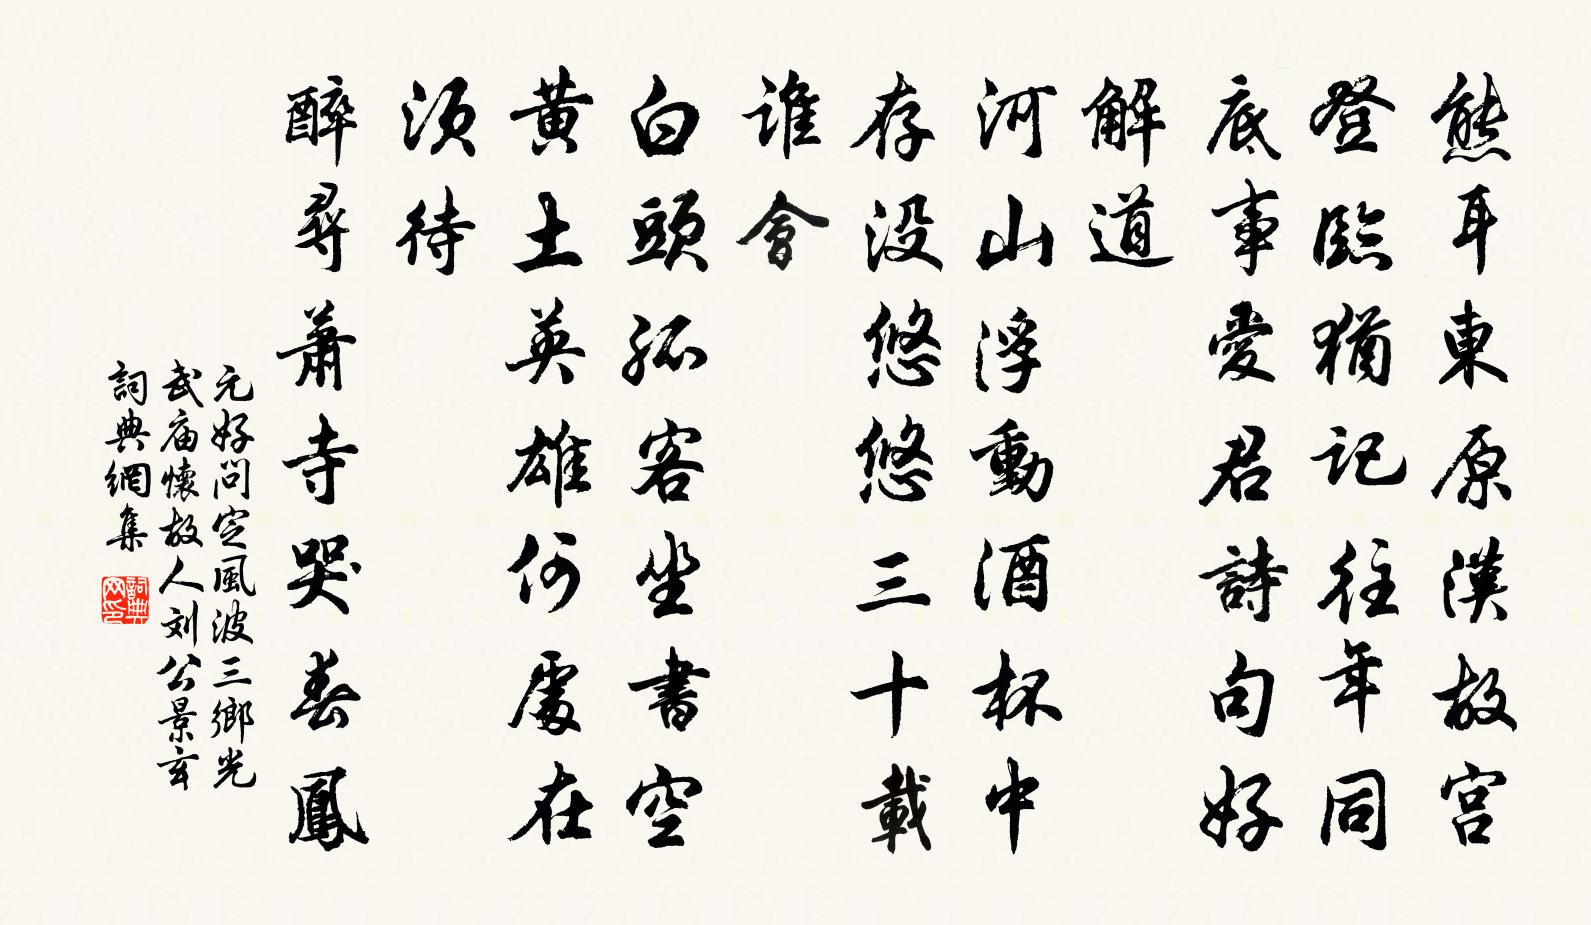 熊耳東原漢故宫
登臨猶記往年同
底事愛君詩句好
解道
河山浮動酒杯中
存没悠悠三十載
谁會
白頭孤客坐書空
黄土英雄何處在
須待
醉尋萧寺哭春鳳
元好问定風波三鄉光
武庙懷故人刘公景玄
詞典網集
詞典网印